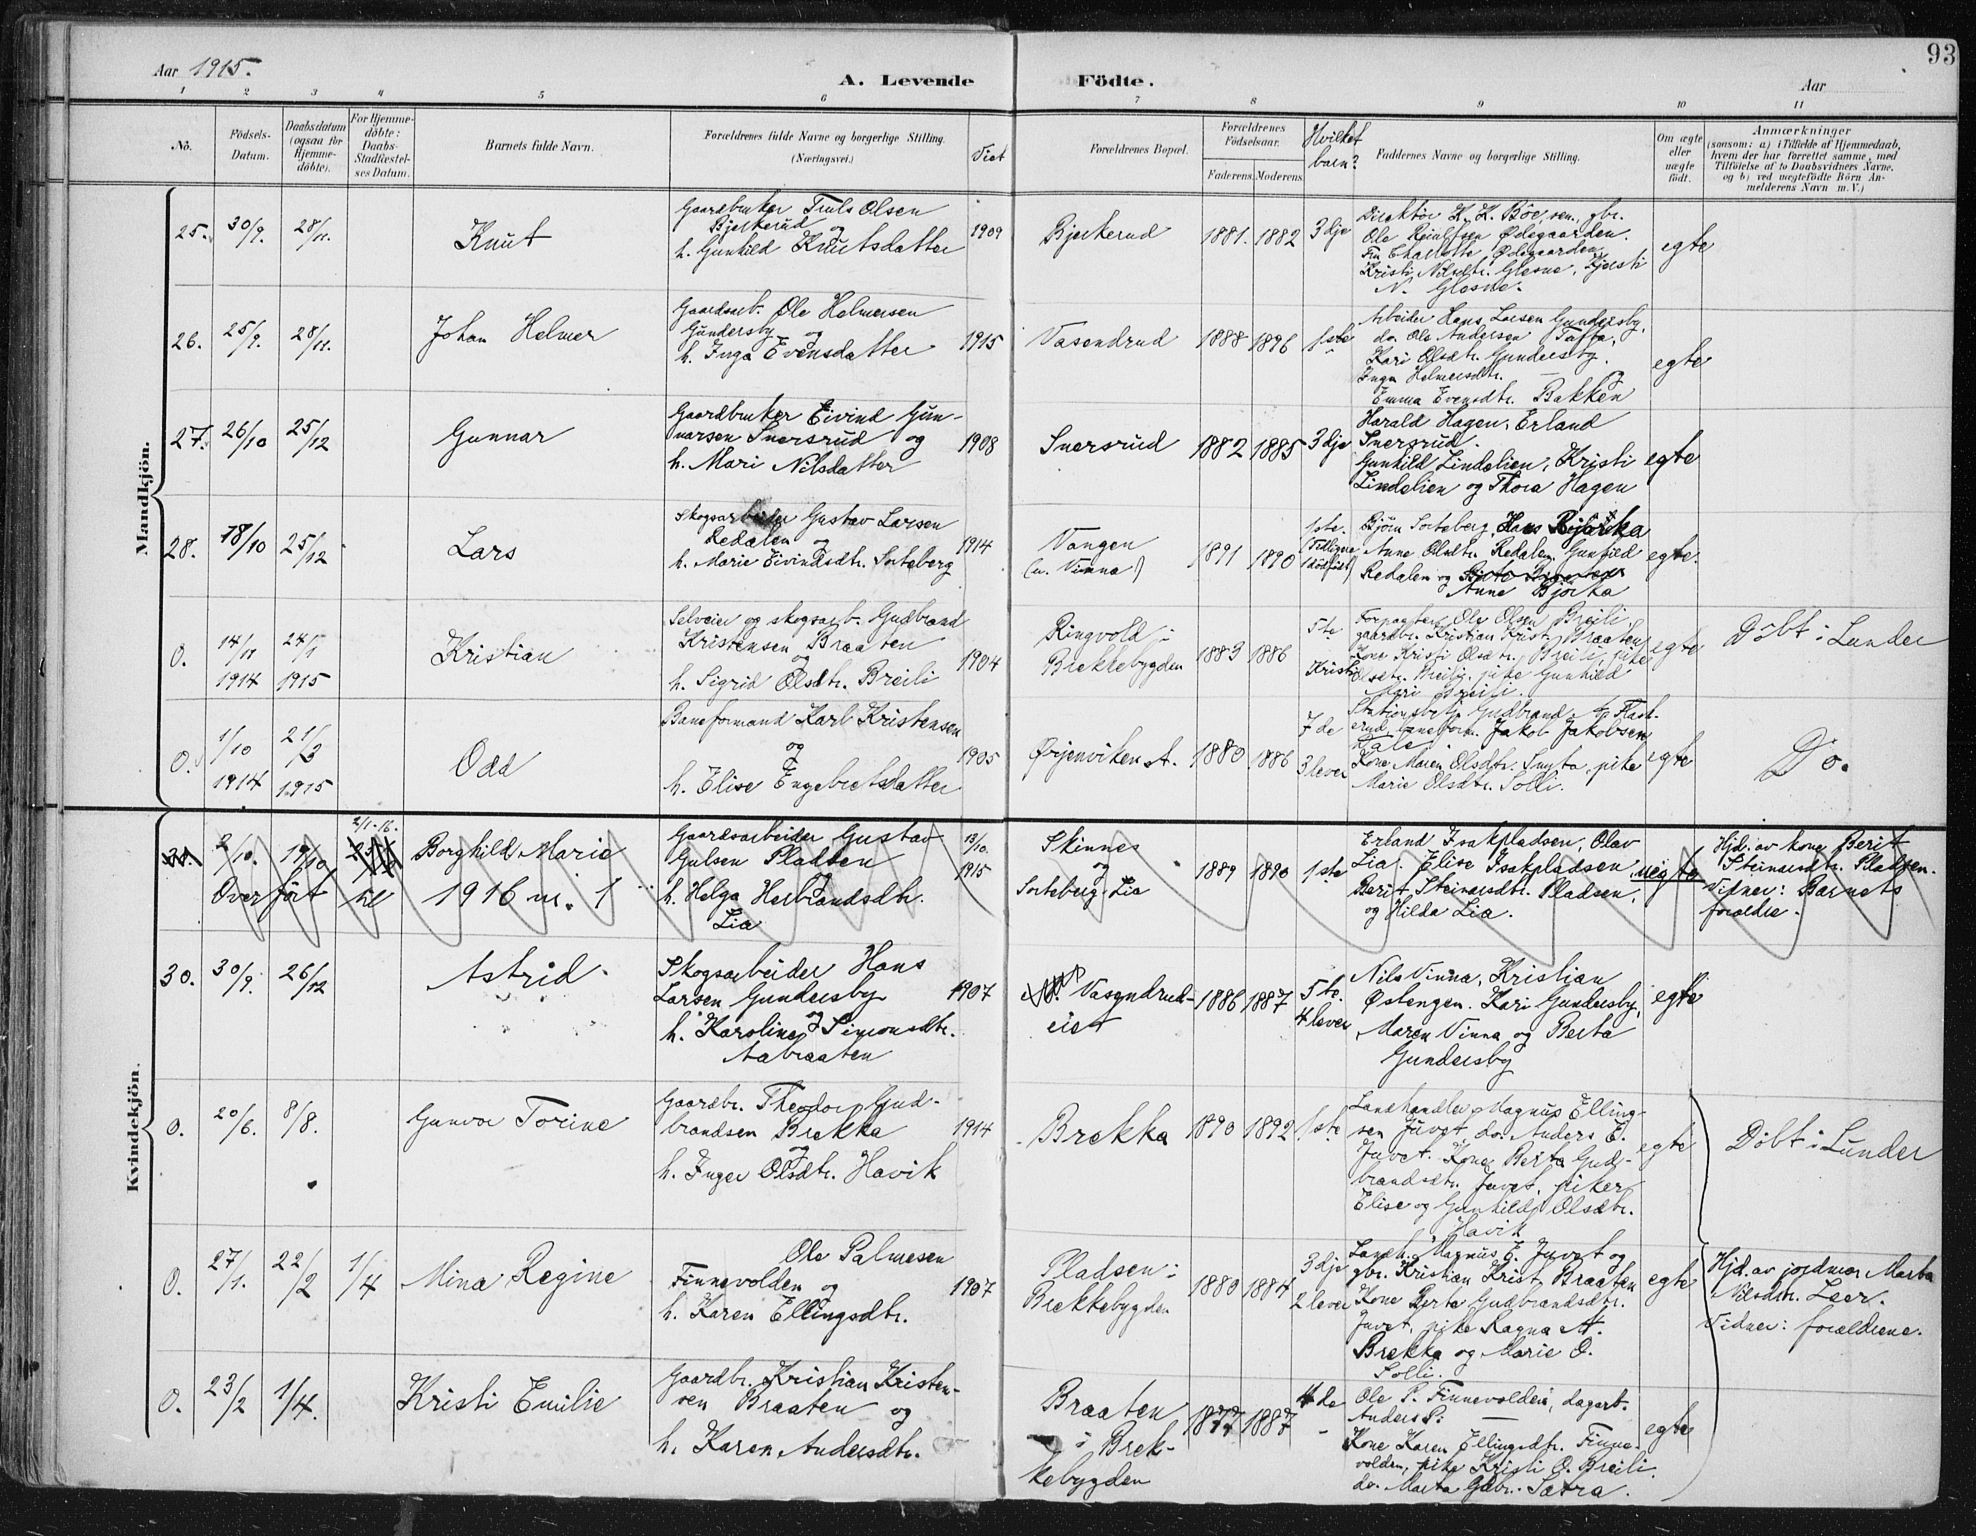 93
Aar 1915.
A. Levende Födte.
Aar
1 2 3 4 5 6 7 8 9 10 11
No.
Födsels-
Datum.
Daabsdatum
(ogsaa for
Hjemme-
döbte).
For Hjemme-
döbte:
Daabs-
Stadfæstel-
ses Datum.
Barnets fulde Navn.
Forældrenes fulde Navne og borgerlige Stilling.
(Næringsvei.)
Viet
Forældrenes Bopæl.
Forældrenes
Födselsaar.
Faderens. Moderens.
Hvilket
barn?
Faddernes Navne og borgerlige Stilling.
Om ægte
eller
uægte
født.
Anmærkninger
(saasom: a) i Tilfælde af Hjemmedaab,
hvem der har forrettet samme, med
Tilföielse af to Daabsvidners Navne.
og b) ved uægtefödte Börn An-
melderens Navn m. V.)
Mandkjön.
25. 30/9. 28/11.
Knut
Gaardbruker Truls Olsen
Bjerkerud og
h. Gunhild Knutsdatter
1909
Bjerkerud
1881. 1882
3dje
Direktör K. K. Böe, sen., gbr.
Ole Ødegaarden.
Charlotte Ødegaarden,
Kristi Nilsdtr. Glesne, Kjersti
N. Glesne.
egte
26. 25/9. 28/11.
Johan Helmer
Gaardsarb. Ole Helmersen
Gundersby og
h. Inga Evensdatter
1915
Vasendrud
1888 1896
1ste
Arbeider Hans Larsen Gundersby,
do. Ole Andersen
Kari Olsdtr. Gundersby.
Inga Helmersdtr. — og
Emma Evensdtr. Bakken
egte
27. 26/10 25/12
Gunnar
Gaardbruker Eivind Gun-
narsen Snersrud og
h. Mari Nilsdatter
1908
Snersrud
1882 1885
3dje
Harald Hagen, Erland
Snersrud.
Gunhild Lindelien, Kristi
Lindelien og Thora Hagen
egte
28. 18/10 25/12
Lars
Skogsarbeider Gustav Larsen
Redalen og
h. Marie Eivindsdtr. Sorteberg
1914
Vangen
(u. Vinna)
1891 1890
1ste.
(Tidligere
1 dödfödt)
Björn Sorteberg, Hans Björka
Anne Olsdtr. Redalen, Gunhild
Redalen og
Anne Björka
egte.
0. 14/11 1914 24/1 1915
Kristian
Selveier og skogsarb. Gudbrand
Kristensen Braaten
og
h. Sigrid Olsdtr. Breili
1904
Ringvold i
Brekkebygden
1883 1886
5te
Forpagter Ole Olsen Breili,
gaardbr. Kristian Krist. Braaten,
Kone Kristi Olsdtr. Breili, pike
Kristi Olsdtr. Breili, pike Gunhild
Mari Breili.
egte
Döbt i Lunder
0. 1/10 1914 21/3 1915
Odd
Baneformand Karl Kristensen
og
h. Elise Engebretsdatter
1905
Ørgenviken st.
1880 1886
7de
3 lever
Stationsbetj. Gudbrand
Jakob Jakobsen
Kone Maren Olsdtr. pike
Marie Olsdtr. Solli.
egte
Do.
Kvindekjön.
2/10. 19/10 2/1-16.
Borghild Marie
Overfört til 1916 nr. 1
Gaardsarbeider Gustav
Gulsen Pladsen
og
h. Helga Herbrandsdtr.
Lia
13/10. 1915
Skinnes
og
Sorteberg-Lia
1889 1890
1ste
Erland Isakpladsen, Olav
Lia. Elise Isakpladsen,
Berit Steinarsdtr. Pladsen,
og Hilda Lia.
uegte
Hjd. av kone Berit
Steinarsdtr. Pladsen.
Vidner: Barnets
forældre.
30. 30/9. 26/12
Astrid.
Skogsarbeider Hans
Larsen Gundersby
og
h. Karoline Simonsdtr.
Aabraaten
1907
Vasendrud-
eiet
1886 1887
5te.
4 lever
Nils Vinna, Kristian
Østengen. Kari Gundersby,
Maren Vinna og Berta
Gundersby
egte
0. 20/6. 8/8.
Gunvor Torine
Gaardbr. Theodor Gud-
brandsen Brekka
og
h. Inger Olsdtr. Havik
1914
Brekka
1890 1892
1ste
Landhandler Magnus Elling-
sen Juvet, do. Anders E.
Juvet. Kone Berta Gud-
brandsdtr. Juvet, piker
Elise og Gunhild Olsdtr.
Havik
egte
Döbt i Lunder
0. 27/1. 22/2 1/4
Mina Regine
Ole Palmesen
Finnevolden og
h. Karen Ellingsdtr.
1907
Pladsen i
Brekkebygden
1880 1884
3dje
2 lever
Landh. Magnus E. Juvet og
gbr. Kristian Krist. Braaten
Kone Berta Gudbrandsdtr.
Juvet, pike Ragna A.
Brekka og Marie O.
Solli.
egte
Hjd. av jordmor Marta
Nilsdtr. Leer.
Vidner: forældrene.
0. 23/2 1/4.
Kristi Emilie
Gaardbr. Kristian Kristen-
sen Braaten og
h. Karen Andersdtr.
Braaten
i Brek-
kebygden
1877 1887
4de
Ole P. Finnevolden, dagarb.
Anders P. —
Kone Karen Ellingsdtr. Finne-
volden, pike Kristi O. Breili.
do. Marta Gdbr. Sætra.
egte